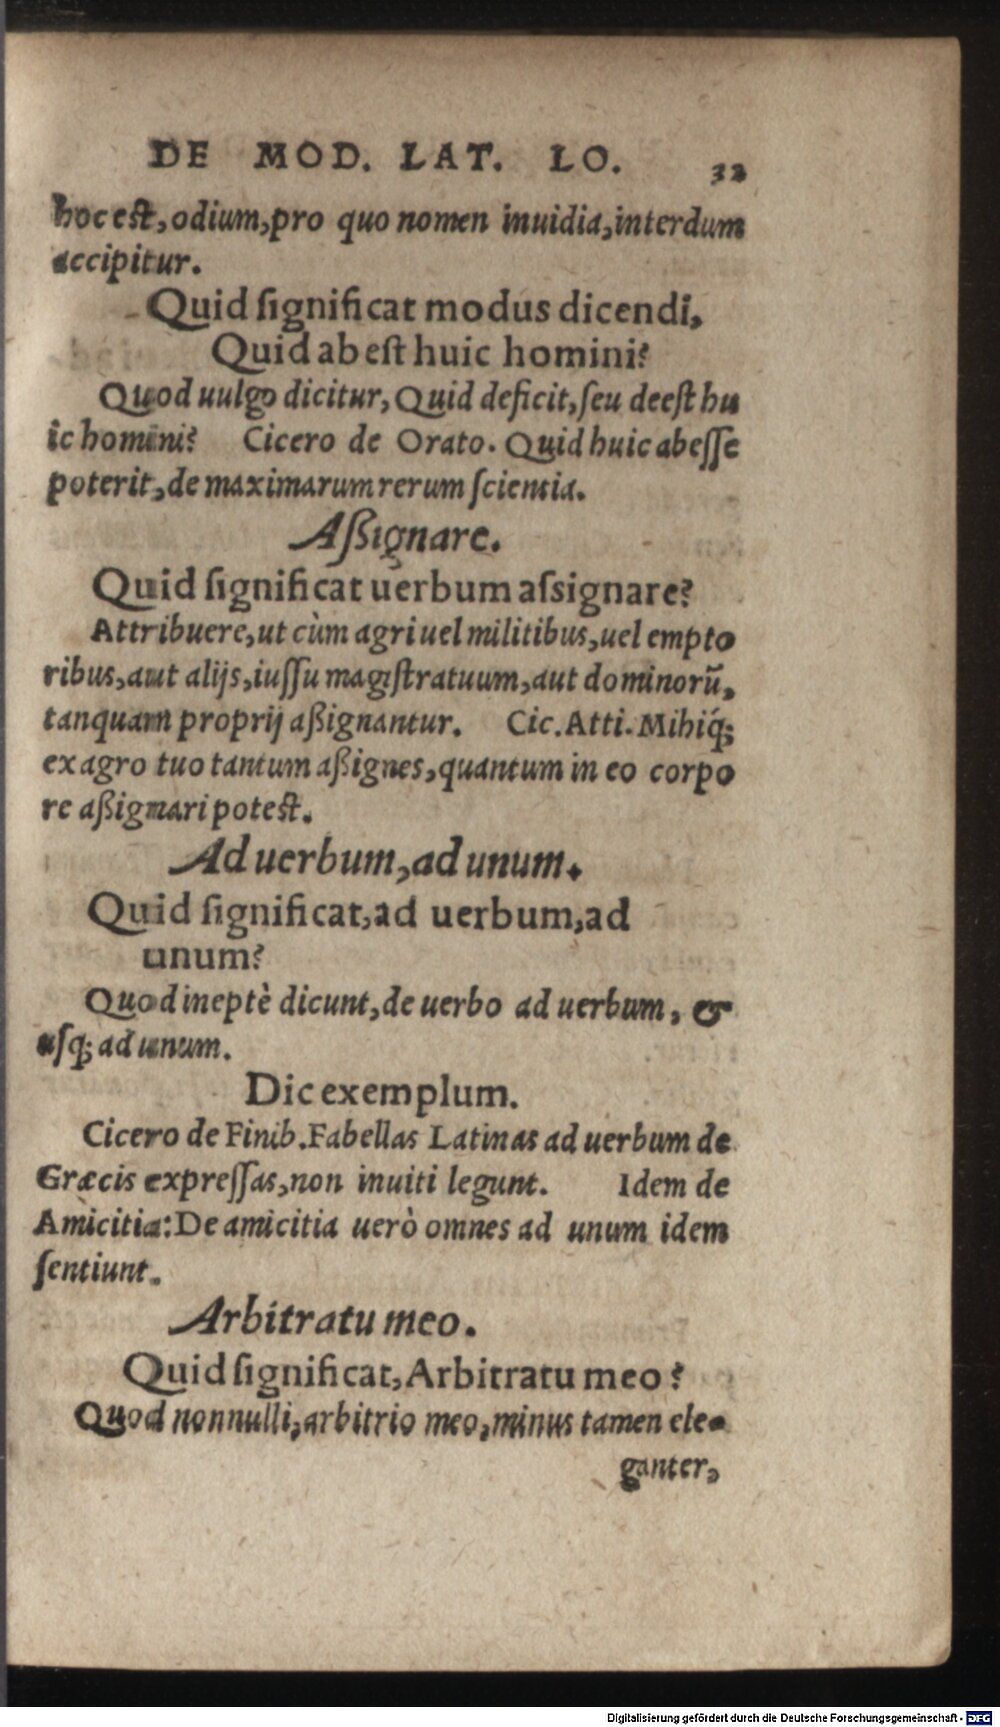 DE MOD. LAT. LO. 32
hoc est, odium, pro quo nomen inuidia, interdum
accipitur.
Quid ſignificat modus dicendi,
Quid abest huic homini?
Quod uulgo dicitur, Quid deficit, ſeu deest hu
ic homini? Cicero de Orato. Quid huic abeſſe
poterit, de maximarum rerum ſcientia.
Aßignare.
Quid ſignificat uerbum aſsignare?
Attribuere, ut cùm agri uel militibus, uel empto
ribus, aut alijs, iuſſu magistratuum, aut dominorū,
tanquam proprij aßignantur. Cic. Atti. Mihiq́;
ex agro tuo tantum aßignes, quantum in eo corpo
re aßignari potest.
Ad uerbum, ad unum.
Quid ſignificat, ad uerbum, ad
unum?
Quod ineptè dicunt, de uerbo ad uerbum, &
uſq; ad unum.
Dic exemplum.
Cicero de Finib. Fabellas Latinas ad uerbum de
Græcis expreſſas, non inuiti legunt. Idem de
Amicitia: De amicitia uerò omnes ad unum idem
ſentiunt.
Arbitratu meo.
Quid ſignificat, Arbitratu meo?
Quod nonnulli, arbitrio meo, minus tamen ele-
ganter,
Digitalisierung gefördert durch die Deutsche Forschungsgemeinschaft - DFG